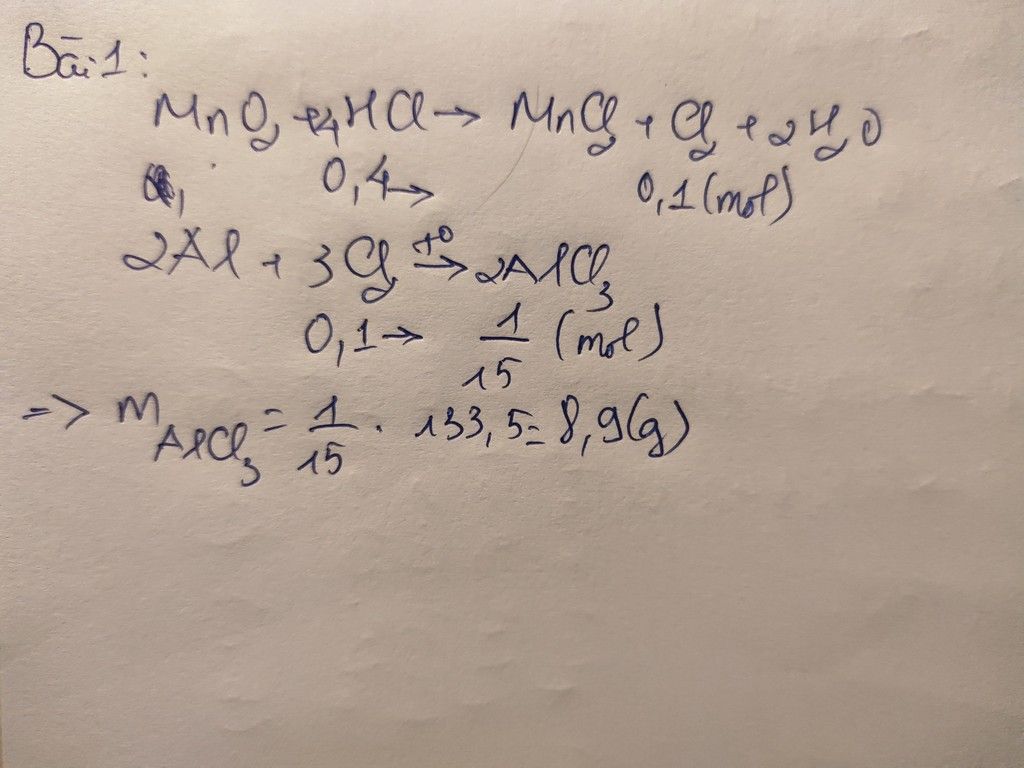 Bài 1:
MnO2 + 4HCl → MnCl2 + Cl2 + 2H2O
0,4 → 0,1 (mol)
2Al + 3Cl2 t° → 2AlCl3
0,1 → 1/15 (mol)
=> mAlCl3 = 1/15 . 133,5 = 8,9(g)